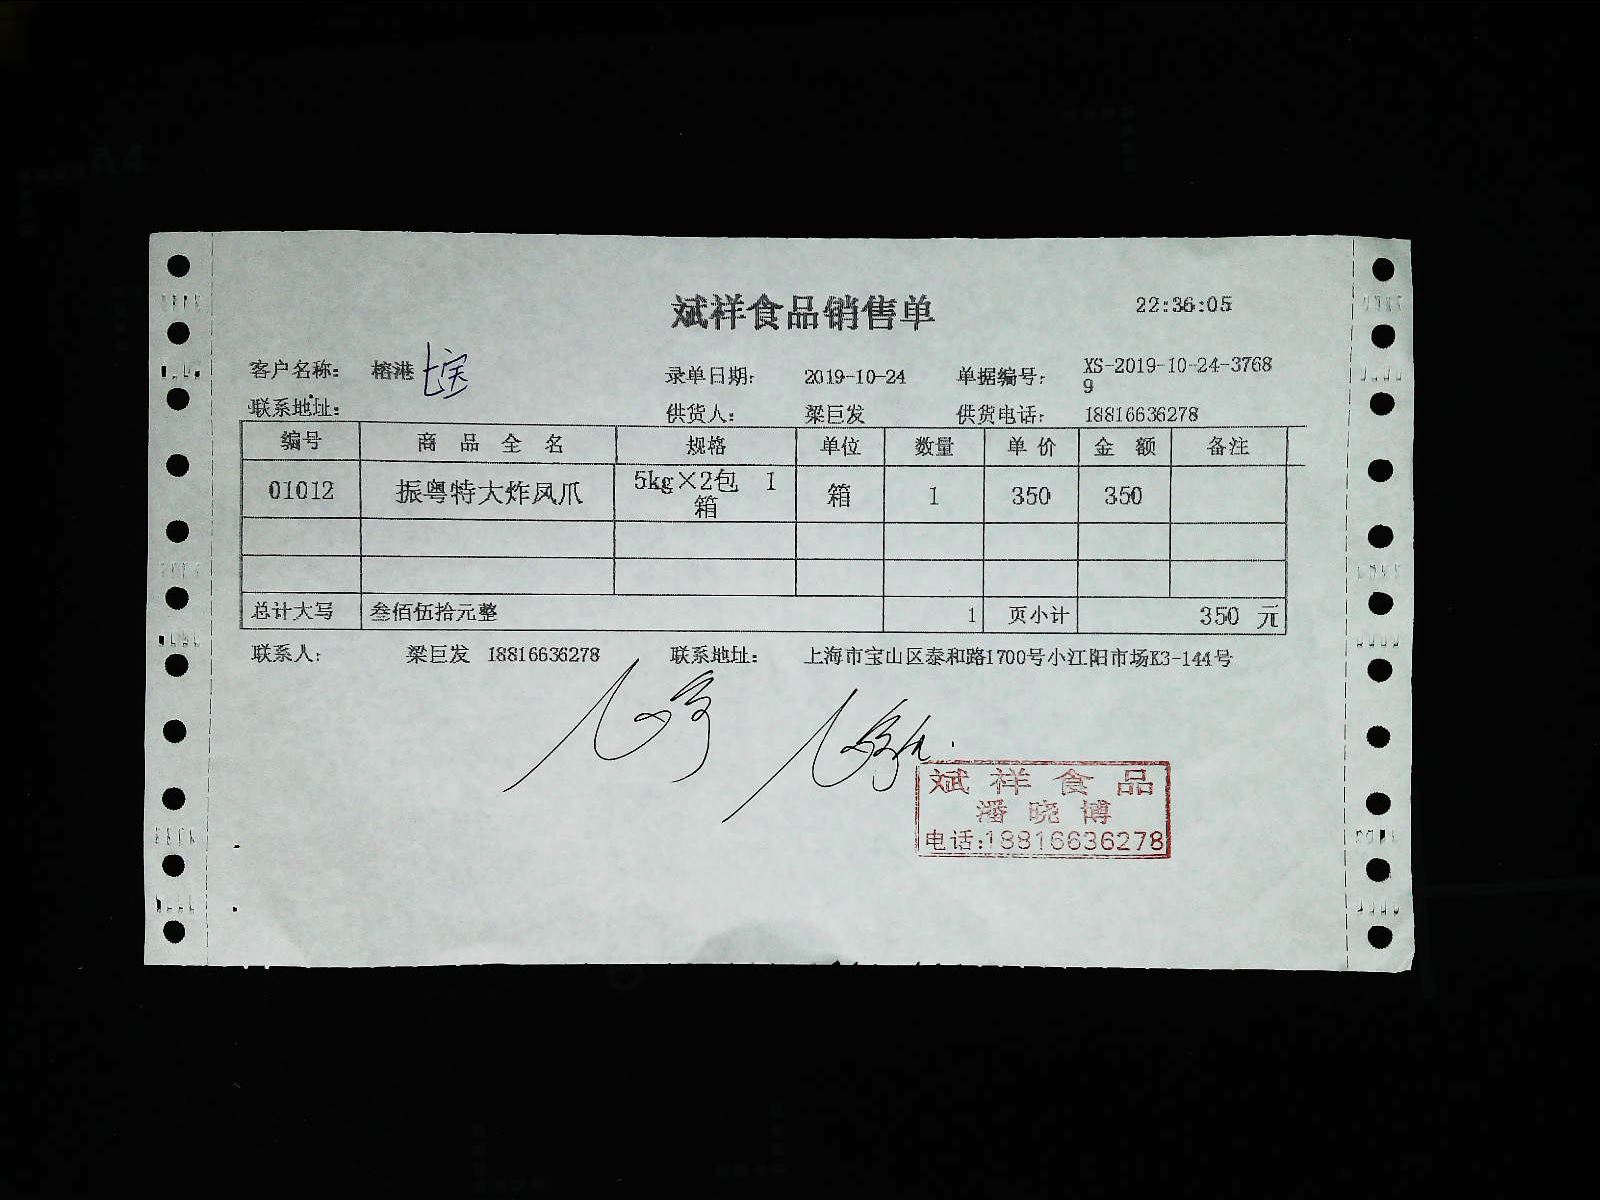 斌祥食品销售单 22:36:05
客户名称: 榕港 七宝 录单日期: 2019-10-24 单据编号: XS-2019-10-24-3768
9
联系地址: 供货人: 梁巨发 供货电话: 18816636278
编号 商 品 全 名 规格 单位 数量 单 价 金 额 备注
01012 振粤特大炸凤爪 5kg×2包 1 箱 1 350 350
箱
总计大写 叁佰伍拾元整 1 页小计 350 元
联系人: 梁巨发 18816636278 联系地址: 上海市宝山区泰和路1700号小江阳市场K3-144号
斌祥食品
潘晓博
电话:18816636278